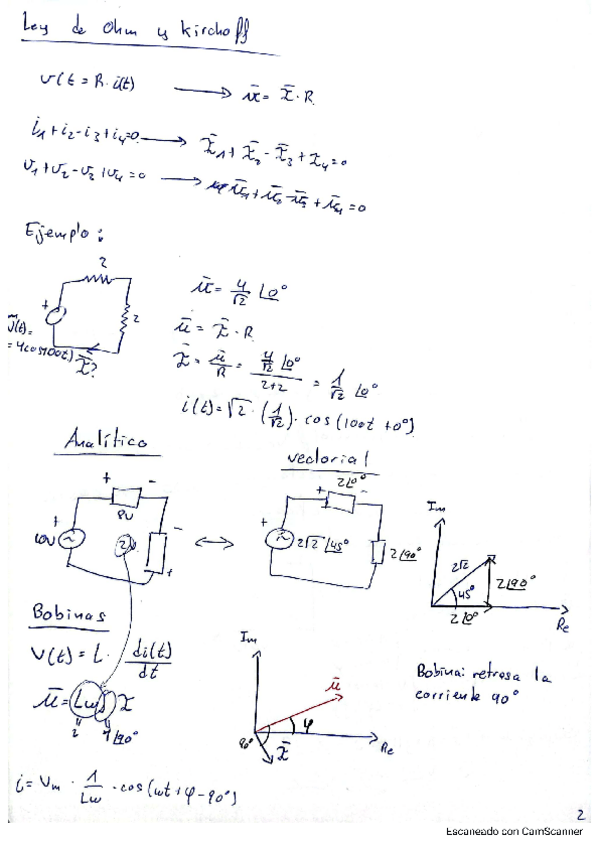 Ley de Ohm y Kirchoff
v(t = R·i(t) → ū = Ī·R
i1+i2-i3+i4=0 → Ī1+Ī2-Ī3+I4=0
v1+v2-v3+v4=0 → ū1+ū2-ū3+ū4=0
Ejemplo:
2
+
2
= 4cos100t)
Ī?
ū = 4/√2 ∠0°
ū = Ī·R
Ī = ū/R = 4/√2 ∠0° / 2+2 = 1/√2 ∠0°
i(t) = √2·(1/√2)·cos(100t+0°)
Analítico
+ -
8V
+
10V
2V
-
+
↔
vectorial
2∠0°
+ -
+
2√2 ∠45°
2∠90°
Im
2√2
2∠90°
45°
2∠0°
Re
Bobinas
V(t) = L· di(t)/dt
ū = Lωj Ī
2
1∠90°
Im
ū
φ
90°
Ī
Re
Bobina: retrasa la
corriente 90°
i = Vm · 1/Lω · cos(ωt+φ-90°)
2
Escaneado con CamScanner